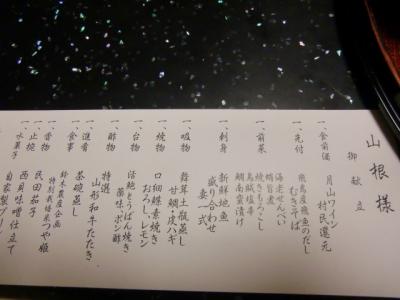 山根様
御献立
一、食前酒 月山ワイン
村民還元
一、先付 むきそば
飛島産飛魚のだし
一、前菜 海老せんべい
蛸旨煮
焼きもろこし
烏賊塩辛
鯛南蛮漬け
一、刺身 新鮮地魚
盛り合わせ
妻一式
一、吸物 舞茸土瓶蒸し
甘鯛・皮ハギ
一、焼物 口細蝶素焼き
おろし、レモン
一、台物 活鮑とうばん焼き
一、酢物 薬味、ポン酢
特選
山形和牛たたき
一、進肴 茶碗蒸し
一、食事 鈴木農産企画
特別栽培米つや姫
一、香物 民田茄子
一、止椀 西貝味噌仕立て
一、水菓子 自家製プリン